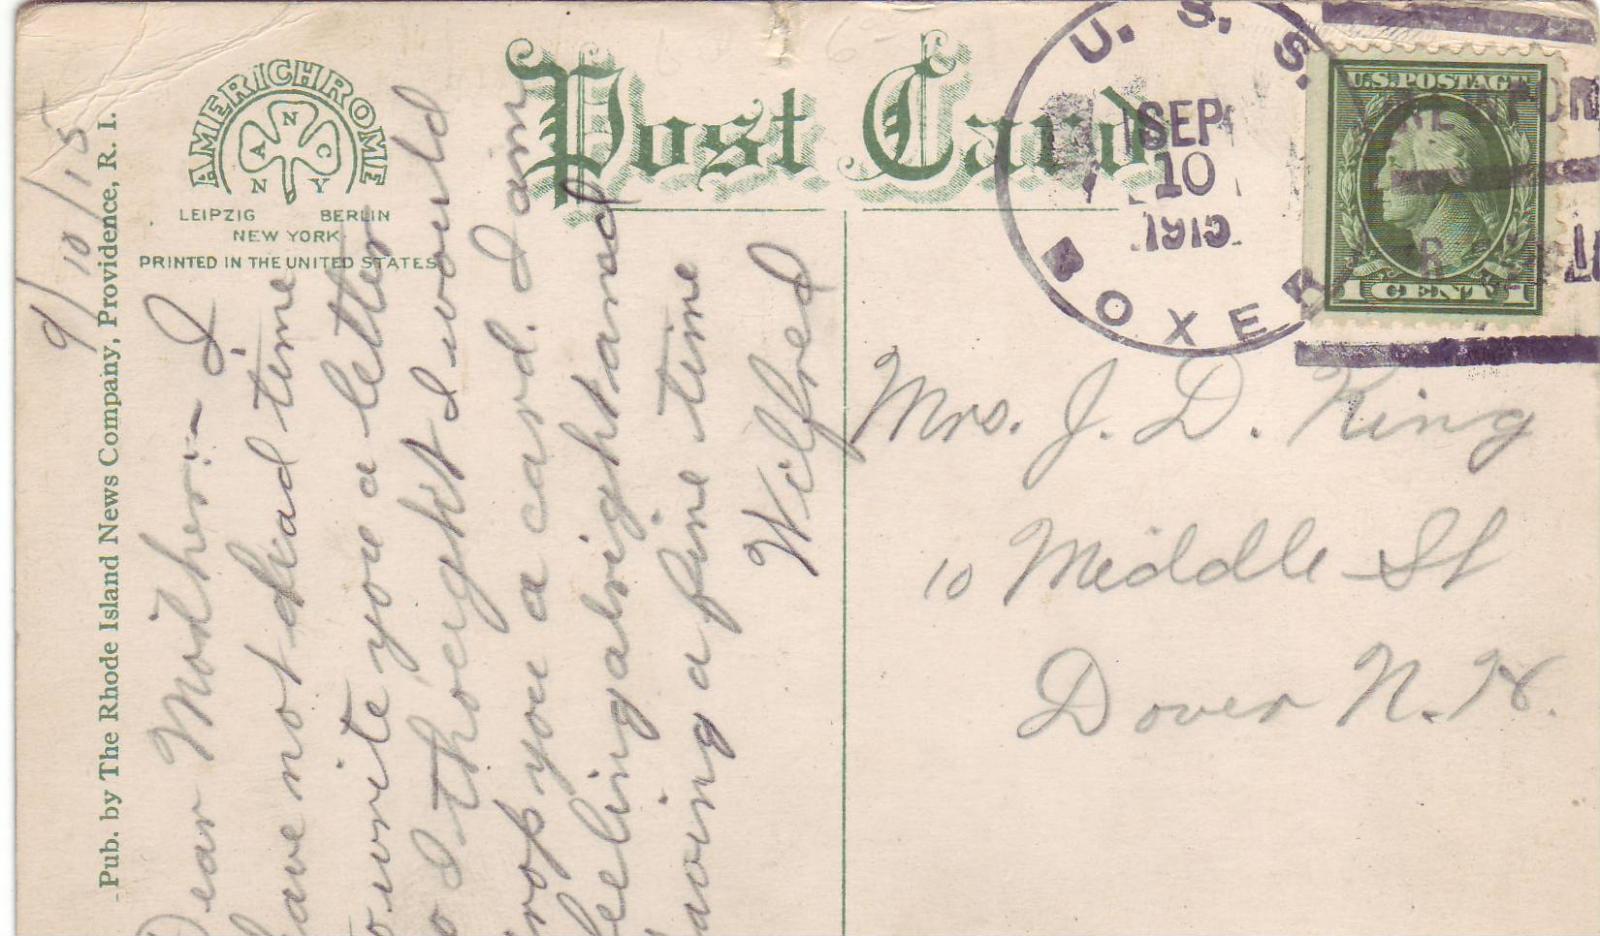 Post Card
AMERICHROME
A N C
N Y
LEIPZIG BERLIN
NEW YORK
PRINTED IN THE UNITED STATES
Pub. by The Rhode Island News Company, Providence, R. I.
9/10/15
Dear Mother:- I
have not had time
to write you a letter
so I thought I would
drop you a card. I am
feeling alright and
having a fine time
Wilfred
U. S. S.
BOXER
SEP
10
1915
U.S. POSTAGE
1 CENT 1
Mrs. J. D. King
10 Middle St
Dover N. H.